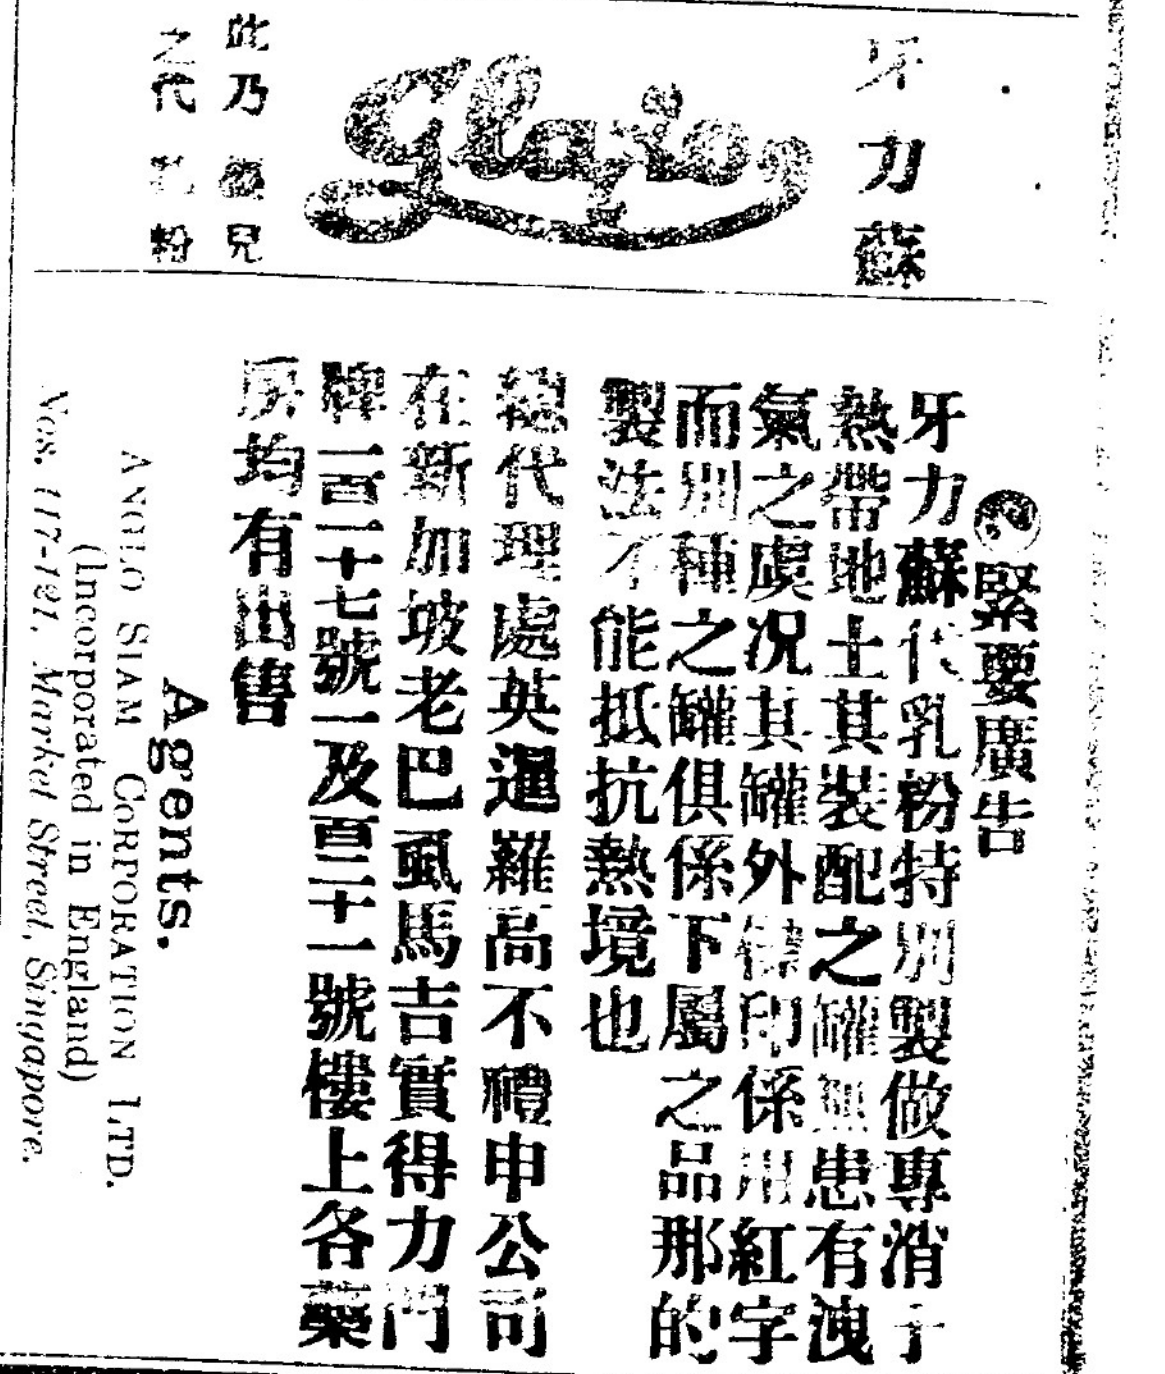 牙力蘇
Glaxio
此乃嬰兒
之代乳粉
緊要廣告
牙力蘇代乳粉特別製做專消于
熱帶地土其裝配之罐無患有洩
氣之虞况其罐外皮印係用紅字
而別種之罐俱係下屬之品那的
製法不能抵抗熱境也
總代理處英暹羅高不禮申公司
在新加坡老巴虱馬吉實得力門
牌一百一十七號一及百二十一號樓上各藥
房均有出售
Agents.
ANGLO SIAM CORPORATION LTD.
(Incorporated in England)
Nos. 117-121, Market Street, Singapore.